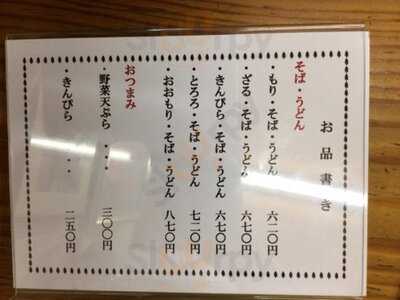 お品書き
そば・うどん
・もり・そば・うどん 六二〇円
・ざる・そば・うどん 六七〇円
・きんぴら・そば・うどん 六七〇円
・とろろ・そば・うどん 七二〇円
・おおもり・そば・うどん 八七〇円
おつまみ
・野菜天ぷら・・・ 三〇〇円
・きんぴら・・・ 二五〇円